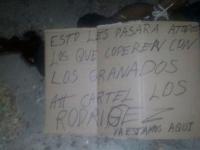 ESTO LES PASARA ATODOS
LOS QUE COPEREN CON
LOS GRANADOS
Att CARTEL LOS
RODRIGEZ
YA ESTAMOS AQUI